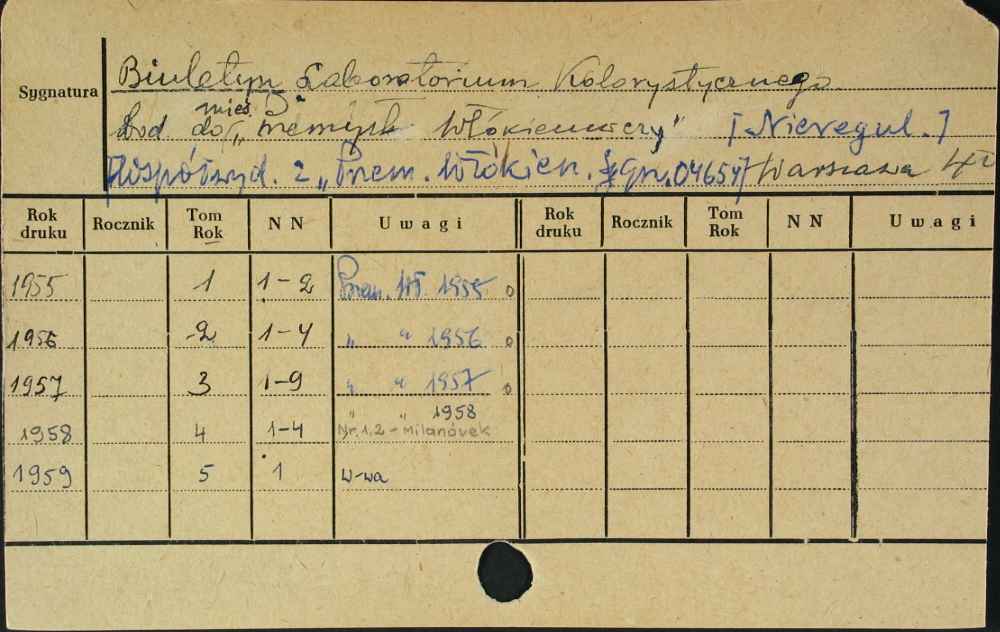 Sygnatura
Biuletyn Laboratorium Kolorystycznego
mies.
Dod. do "Przemysłu Włókienniczy" [Nieregul.]
Współwyd. z "Przem. Włókien. Sygn. 04654] Warszawa 4º
Rok druku Rocznik Tom Rok NN Uwagi Rok druku Rocznik Tom Rok NN Uwagi
1955 1 1-2 Przem. Wł. 1955 o
1956 2 1-4 " " 1956 o
1957 3 1-9 " " 1957 o
" " 1958
1958 4 1-4 Nr. 1, 2 - Milanówek
1959 5 1 W-wa